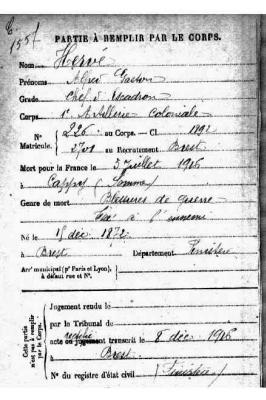 PARTIE À REMPLIR PAR LE CORPS.
Nom Hervé
Prénoms Alfred Gaston
Grade Chef d'Escadron
Corps 1er Artillerie Coloniale
N° 226 au Corps. — Cl. 1892
Matricule. 2701 au Recrutement Brest
Mort pour la France le 5 Juillet 1916
à Cappy (Somme)
Genre de mort Blessures de guerre
Tué à l'ennemi
Né le 15 déc. 1872
à Brest Département Finistère
Arrt municipal (pr Paris et Lyon),
à défaut rue et N°.
Cette partie
n'est pas à remplir
par le Corps.
Jugement rendu le
par le Tribunal de
acte ou jugement transcrit le 8 déc. 1916
à Brest
N° du registre d'état civil (Finistère)